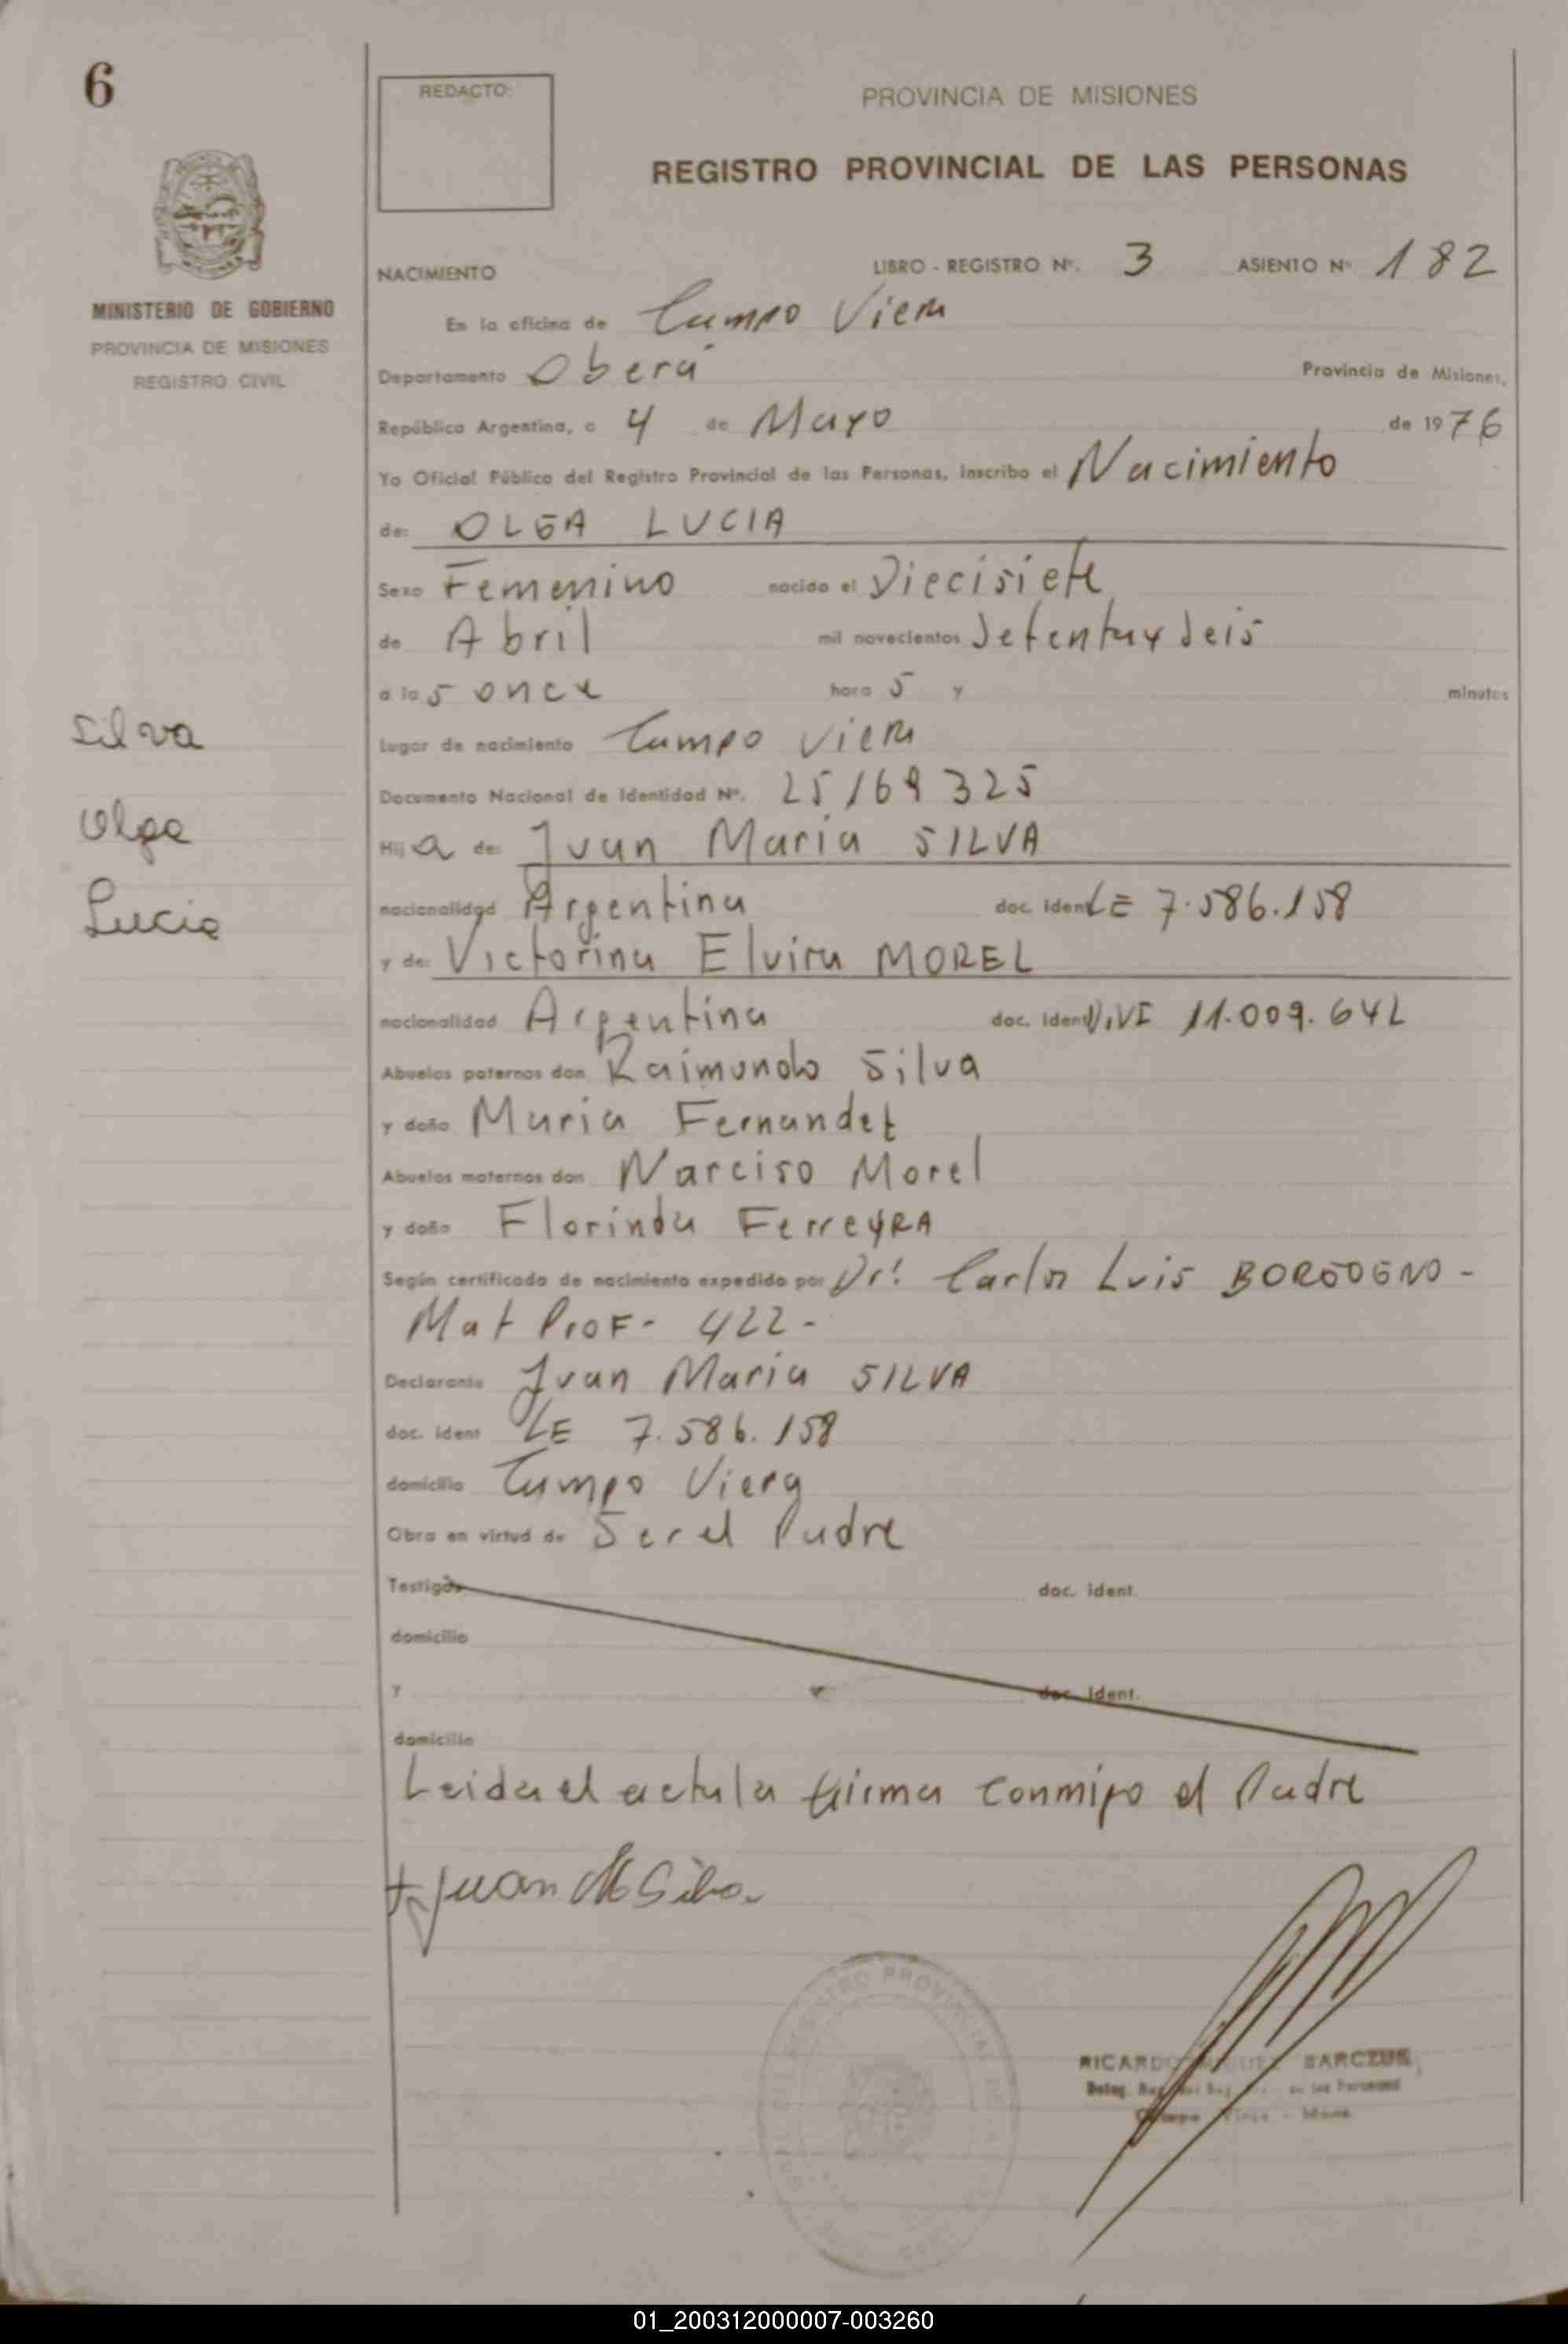 6
REDACTO:
PROVINCIA DE MISIONES
REGISTRO PROVINCIAL DE LAS PERSONAS
MINISTERIO DE GOBIERNO
PROVINCIA DE MISIONES
REGISTRO CIVIL
NACIMIENTO LIBRO - REGISTRO Nº. 3 ASIENTO Nº 182
En la oficina de Campo Viera
Departamento Oberá Provincia de Misiones,
República Argentina, a 4 de Mayo de 1976
Yo Oficial Público del Registro Provincial de las Personas, inscribo el Nacimiento
de: OLGA LUCIA
Sexo Femenino nacido el Diecisiete
de Abril mil novecientos Setentay Seis
a las once hora s y minutos
Silva
Lugar de nacimiento Campo Viera
Documento Nacional de Identidad Nº. 25169325
Olga
Hija de: Juan Maria SILVA
Lucia
nacionalidad Argentina doc. ident LE 7.586.158
y de: Victorina Elvira MOREL
nacionalidad Argentina doc. ident 11.009.642
Abuelos paternos don Raimundo Silva
y doña Maria Fernandez
Abuelos maternos don Narciso Morel
y doña Florinda FerreyRA
Según certificado de nacimiento expedido por Dr: Carlos Luis BORGOGNO -
Mat Prof- 422-
Declarante Juan Maria SILVA
doc. ident LE 7.586.158
domicilio Campo Viera
Obra en virtud de Ser el Padre
Testigos doc. ident.
domicilio
y doc. ident.
domicilio
Leida el acta la firma conmigo el Padre
Juan M Silva
REGISTRO PROVINCIAL DE
RICARDO BARCZUK
Campo Viera - Mnes
01_200312000007-003260